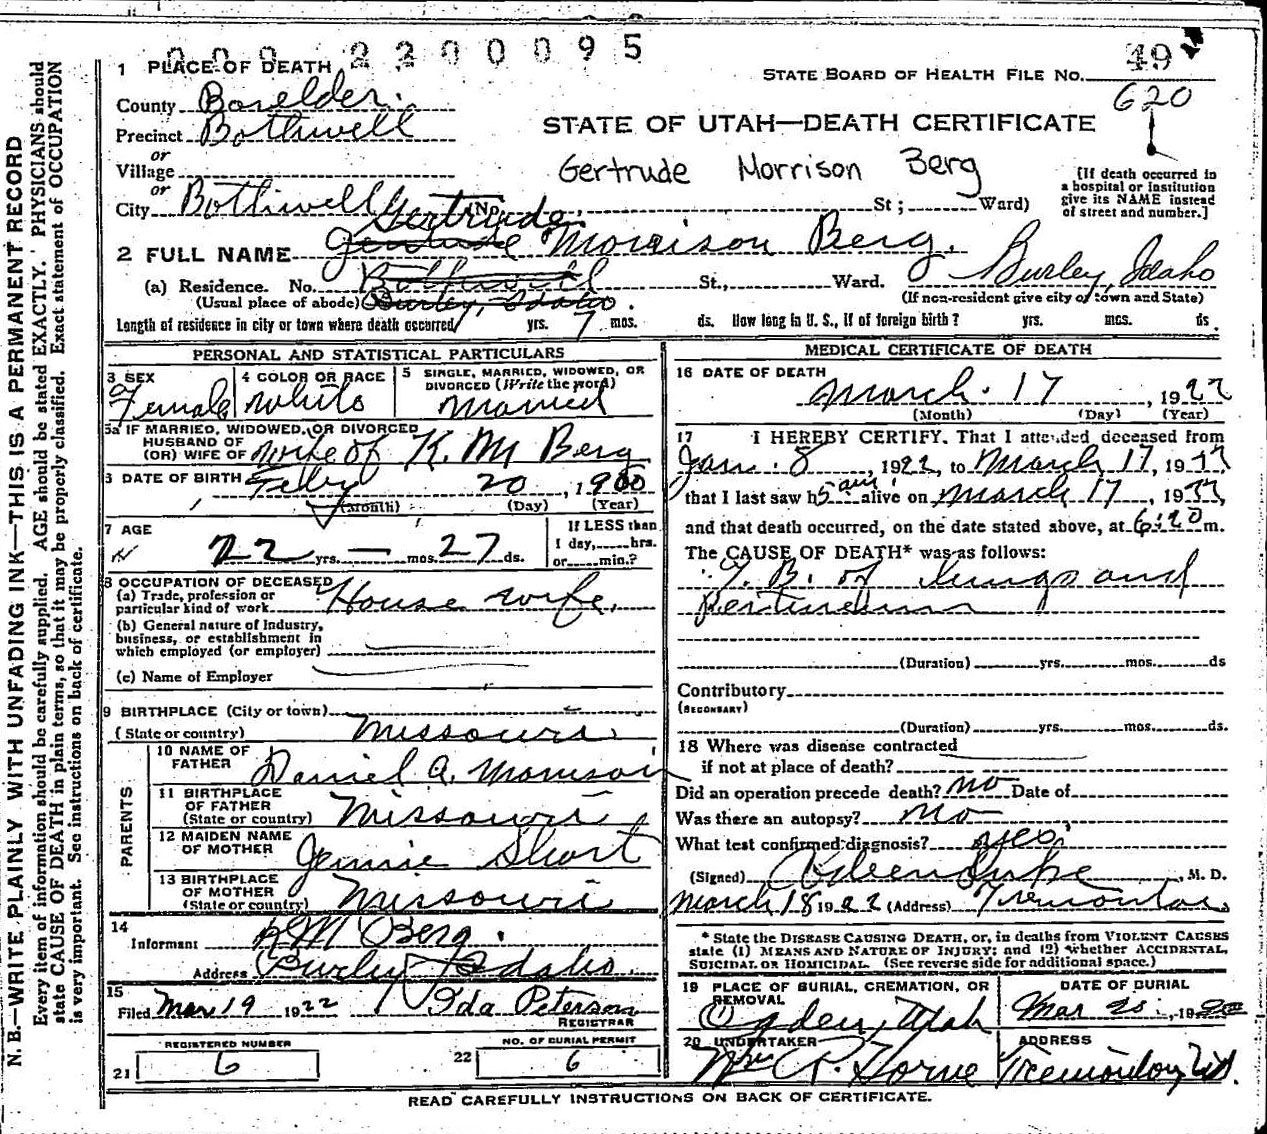 000 2200095
1 PLACE OF DEATH
49
STATE BOARD OF HEALTH FILE No.
620
County Boxelder.
Precinct Bothwell
STATE OF UTAH—DEATH CERTIFICATE
or
Village
Gertrude Morrison Berg
[If death occurred in
a hospital or institution
give its NAME instead
of street and number.]
or
City Bothwell (No. St; Ward)
Gertrude
2 FULL NAME Gertrude Morrison Berg.
(a) Residence. No. Bothwell St., Ward. Burley, Idaho
(Usual place of abode) Burley, Idaho. (If non-resident give city or town and State)
Length of residence in city or town where death occurred yrs. 7 mos. ds. How long in U. S., if of foreign birth? yrs. mos. ds.
PERSONAL AND STATISTICAL PARTICULARS
3 SEX
Female
4 COLOR OR RACE
White
5 SINGLE, MARRIED, WIDOWED, OR
DIVORCED (Write the word)
Married
5a IF MARRIED, WIDOWED, OR DIVORCED
HUSBAND OF
(OR) WIFE OF wife of K. M Berg
6 DATE OF BIRTH Feby 20, 1900
(Month) (Day) (Year)
7 AGE
22 yrs. — mos. 27 ds.
If LESS than
1 day, hrs.
or min.?
8 OCCUPATION OF DECEASED
(a) Trade, profession or
particular kind of work House wife,
(b) General nature of Industry,
business, or establishment in
which employed (or employer)
(c) Name of Employer
9 BIRTHPLACE (City or town)
(State or country) Missouri
PARENTS
10 NAME OF
FATHER Daniel A. Morrison
11 BIRTHPLACE
OF FATHER
(State or country) Missouri
12 MAIDEN NAME
OF MOTHER Jennie Short
13 BIRTHPLACE
OF MOTHER
(State or country) Missouri
14
Informant K M Berg.
Address Burley Idaho.
15
Filed Mar 19 1922 Ida Peterson
REGISTRAR
REGISTERED NUMBER
21 6
NO. OF BURIAL PERMIT
22 6
MEDICAL CERTIFICATE OF DEATH
16 DATE OF DEATH
March 17, 1922
(Month) (Day) (Year)
17 I HEREBY CERTIFY, That I attended deceased from
Jan. 8, 1922, to March 17, 1922
that I last saw h alive on March 17, 1922
5 am
and that death occurred, on the date stated above, at 6:20 m.
The CAUSE OF DEATH* was as follows:
T. B. of lungs and
(Duration) yrs. mos. ds
Contributory
(SECONDARY)
(Duration) yrs. mos. ds.
18 Where was disease contracted
if not at place of death?
Did an operation precede death? no Date of
Was there an autopsy? no
What test confirmed diagnosis? yes.
(Signed) , M. D.
March 18 1922 (Address) Tremonton
* State the DISEASE CAUSING DEATH, or, in deaths from VIOLENT CAUSES
state (1) MEANS AND NATURE OF INJURY; and (2) whether ACCIDENTAL,
SUICIDAL OR HOMICIDAL. (See reverse side for additional space.)
19 PLACE OF BURIAL, CREMATION, OR
REMOVAL
Ogden, Utah
DATE OF BURIAL
Mar 20, 19
20 UNDERTAKER
Wm P. Horne
ADDRESS
Tremonton, Ut.
READ CAREFULLY INSTRUCTIONS ON BACK OF CERTIFICATE.
N. B.—WRITE PLAINLY WITH UNFADING INK—THIS IS A PERMANENT RECORD
Every item of information should be carefully supplied. AGE should be stated EXACTLY. PHYSICIANS should
state CAUSE OF DEATH in plain terms, so that it may be properly classified. Exact statement of OCCUPATION
is very important. See instructions on back of certificate.